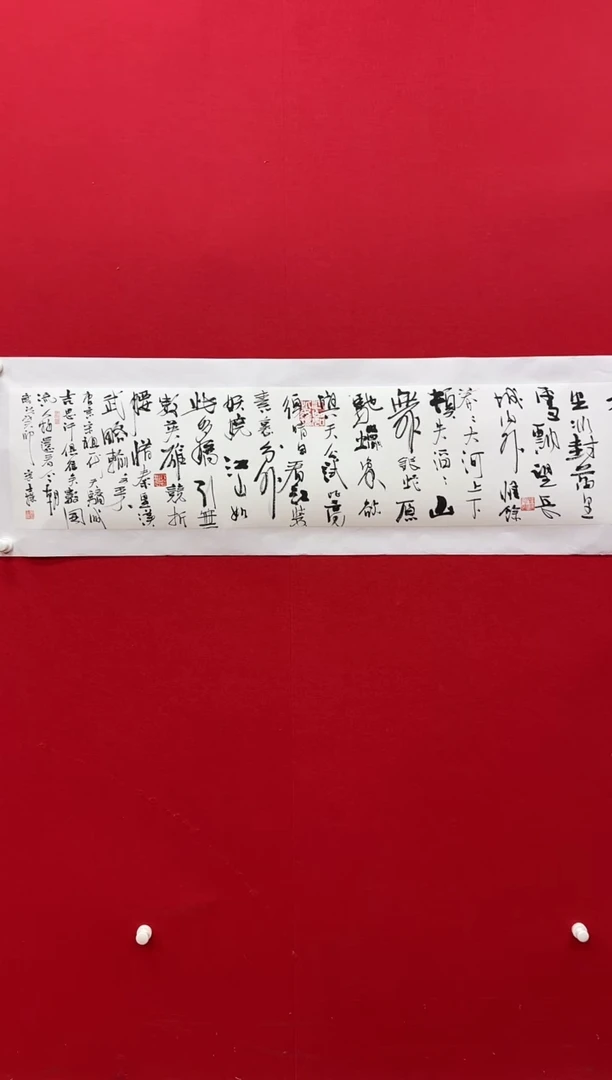 里冰封萬里
雪飄望長
城內外惟餘
莽〻大河上下
頓失滔〻山
舞銀蛇原
馳蠟象欲
與天公試比高
須晴日看紅裝
素裹分外
妖嬈江山如
此多嬌引無
數英雄競折
腰惜秦皇漢
武略輸文采
唐宗宋祖一代天驕成
吉思汗俱往矣數風
流人物還看今朝